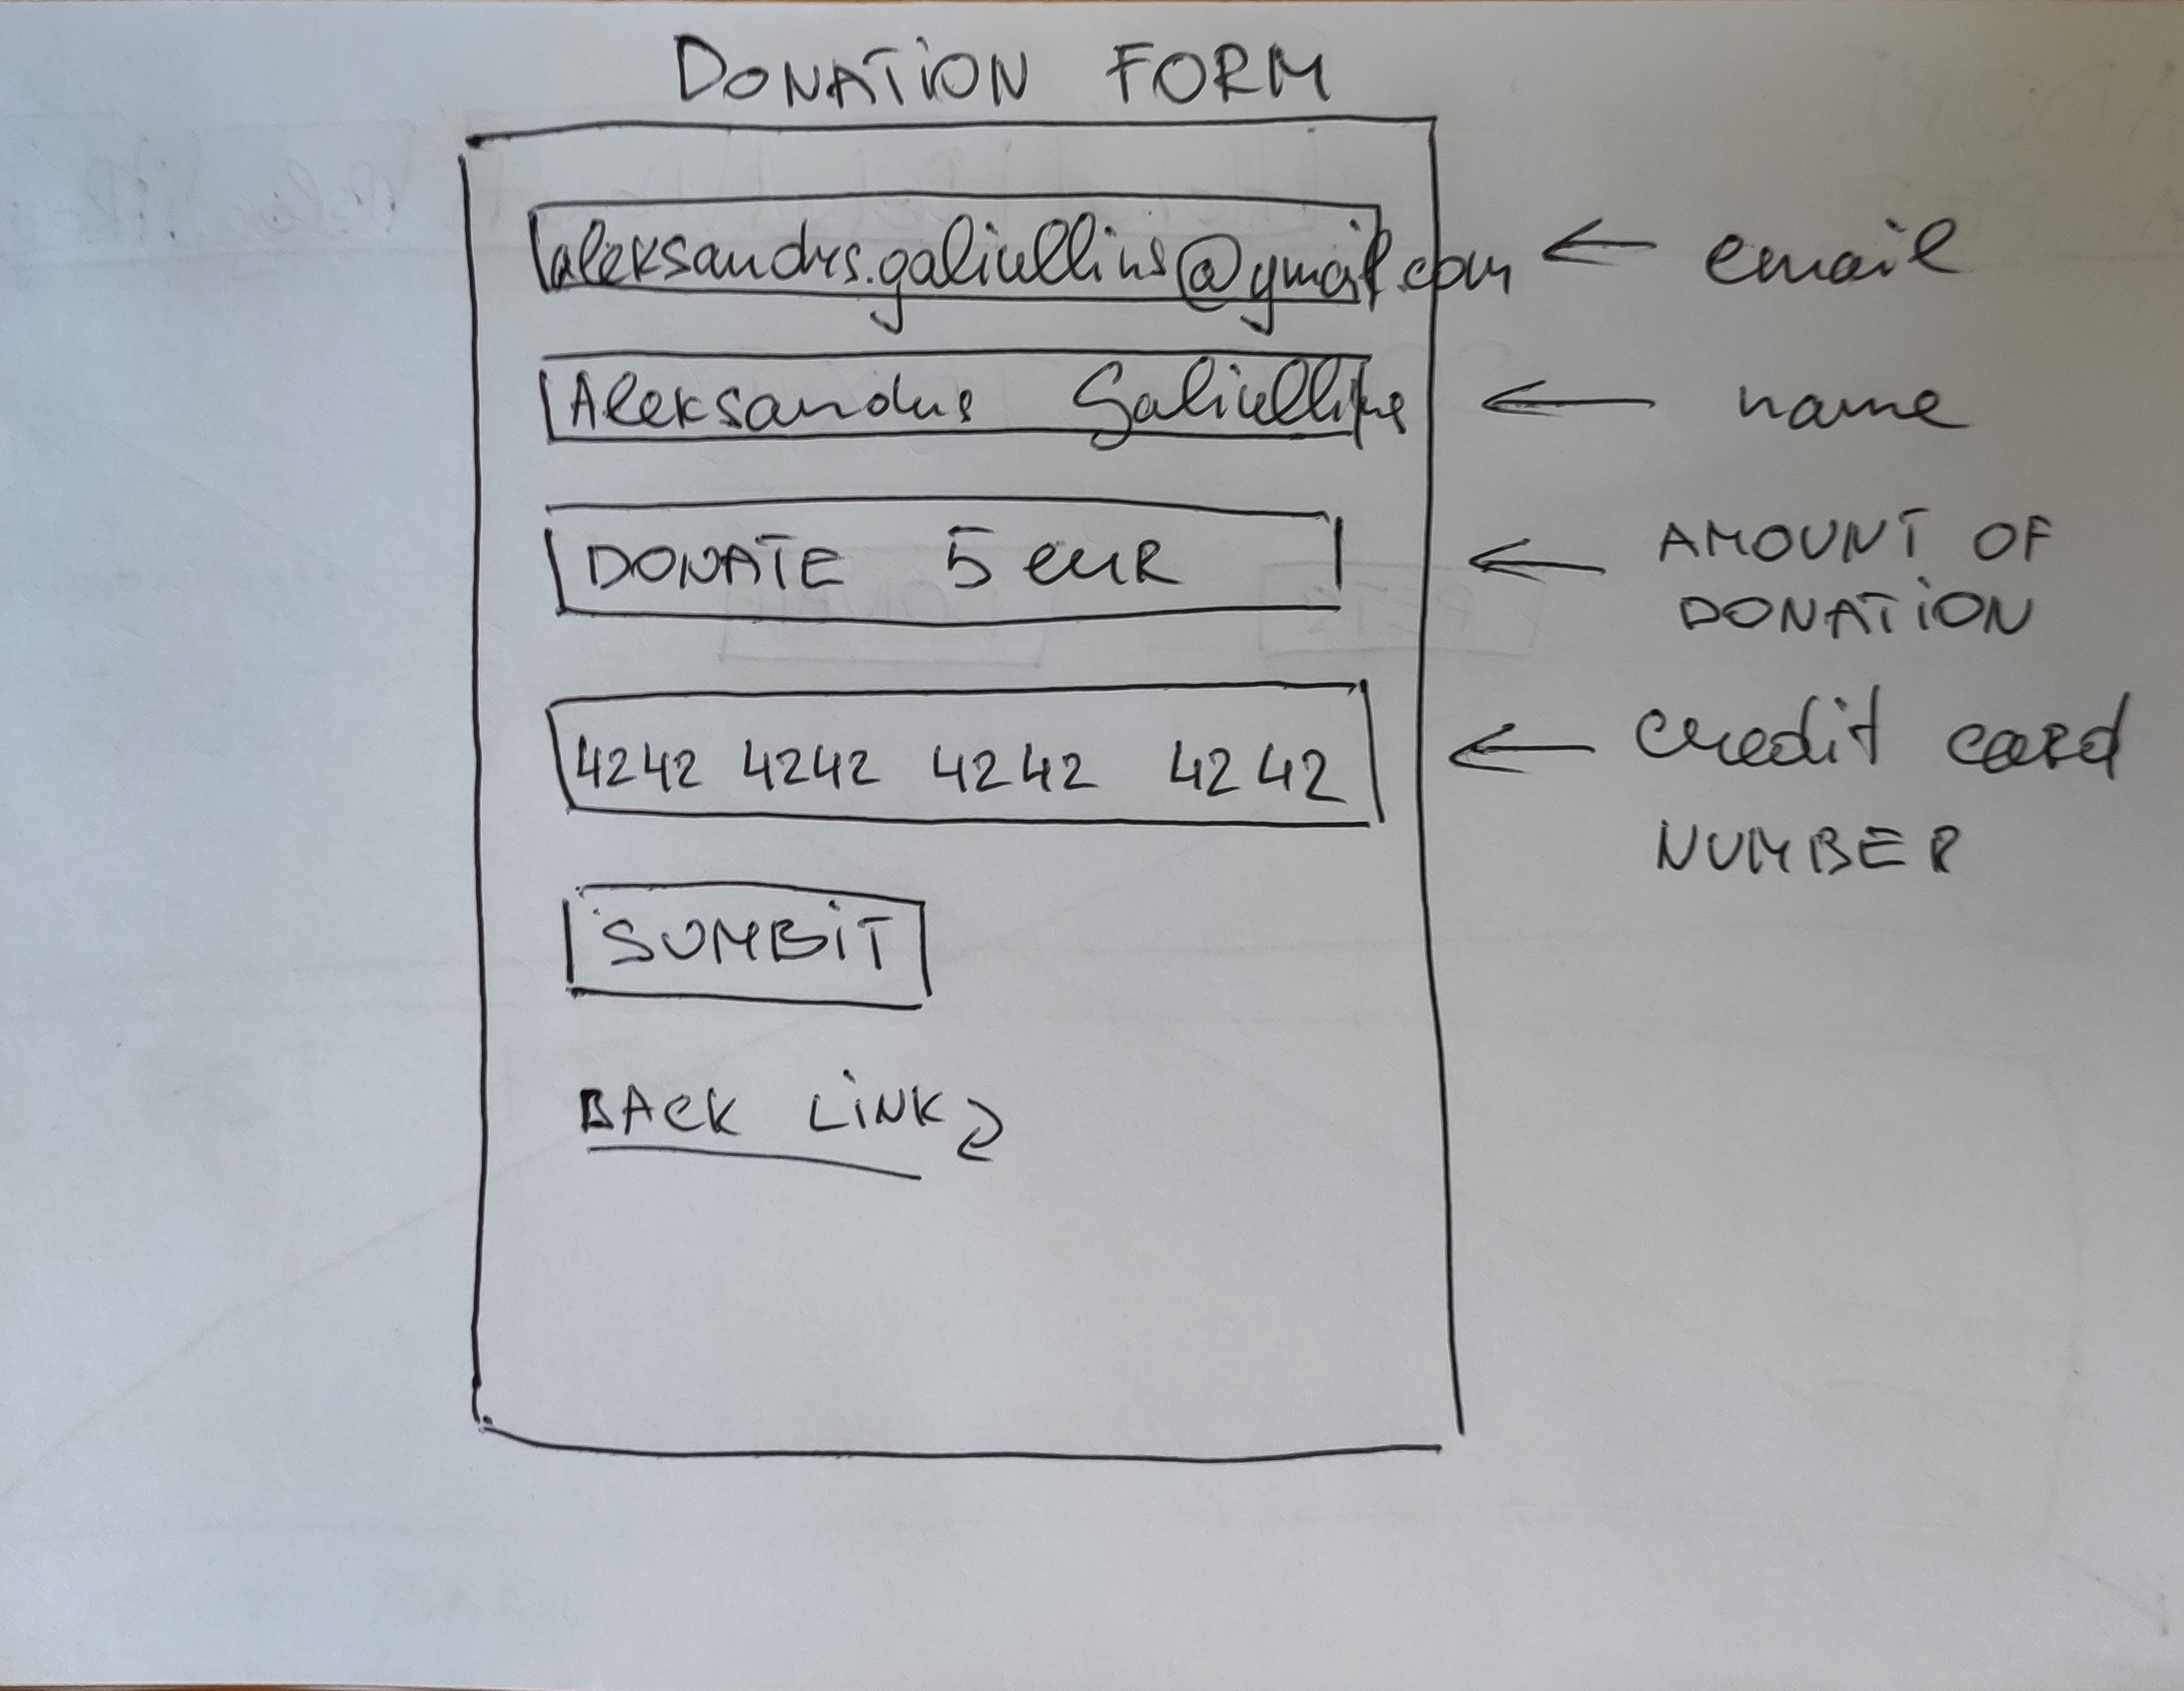 DONATION FORM
aleksandrs.galiullins@gmail.com ← email
Aleksandrs Galiullins ← name
DONATE 5 EUR ← AMOUNT OF
DONATION
4242 4242 4242 4242 ← credit card
NUMBER
SUMBIT
BACK LINK